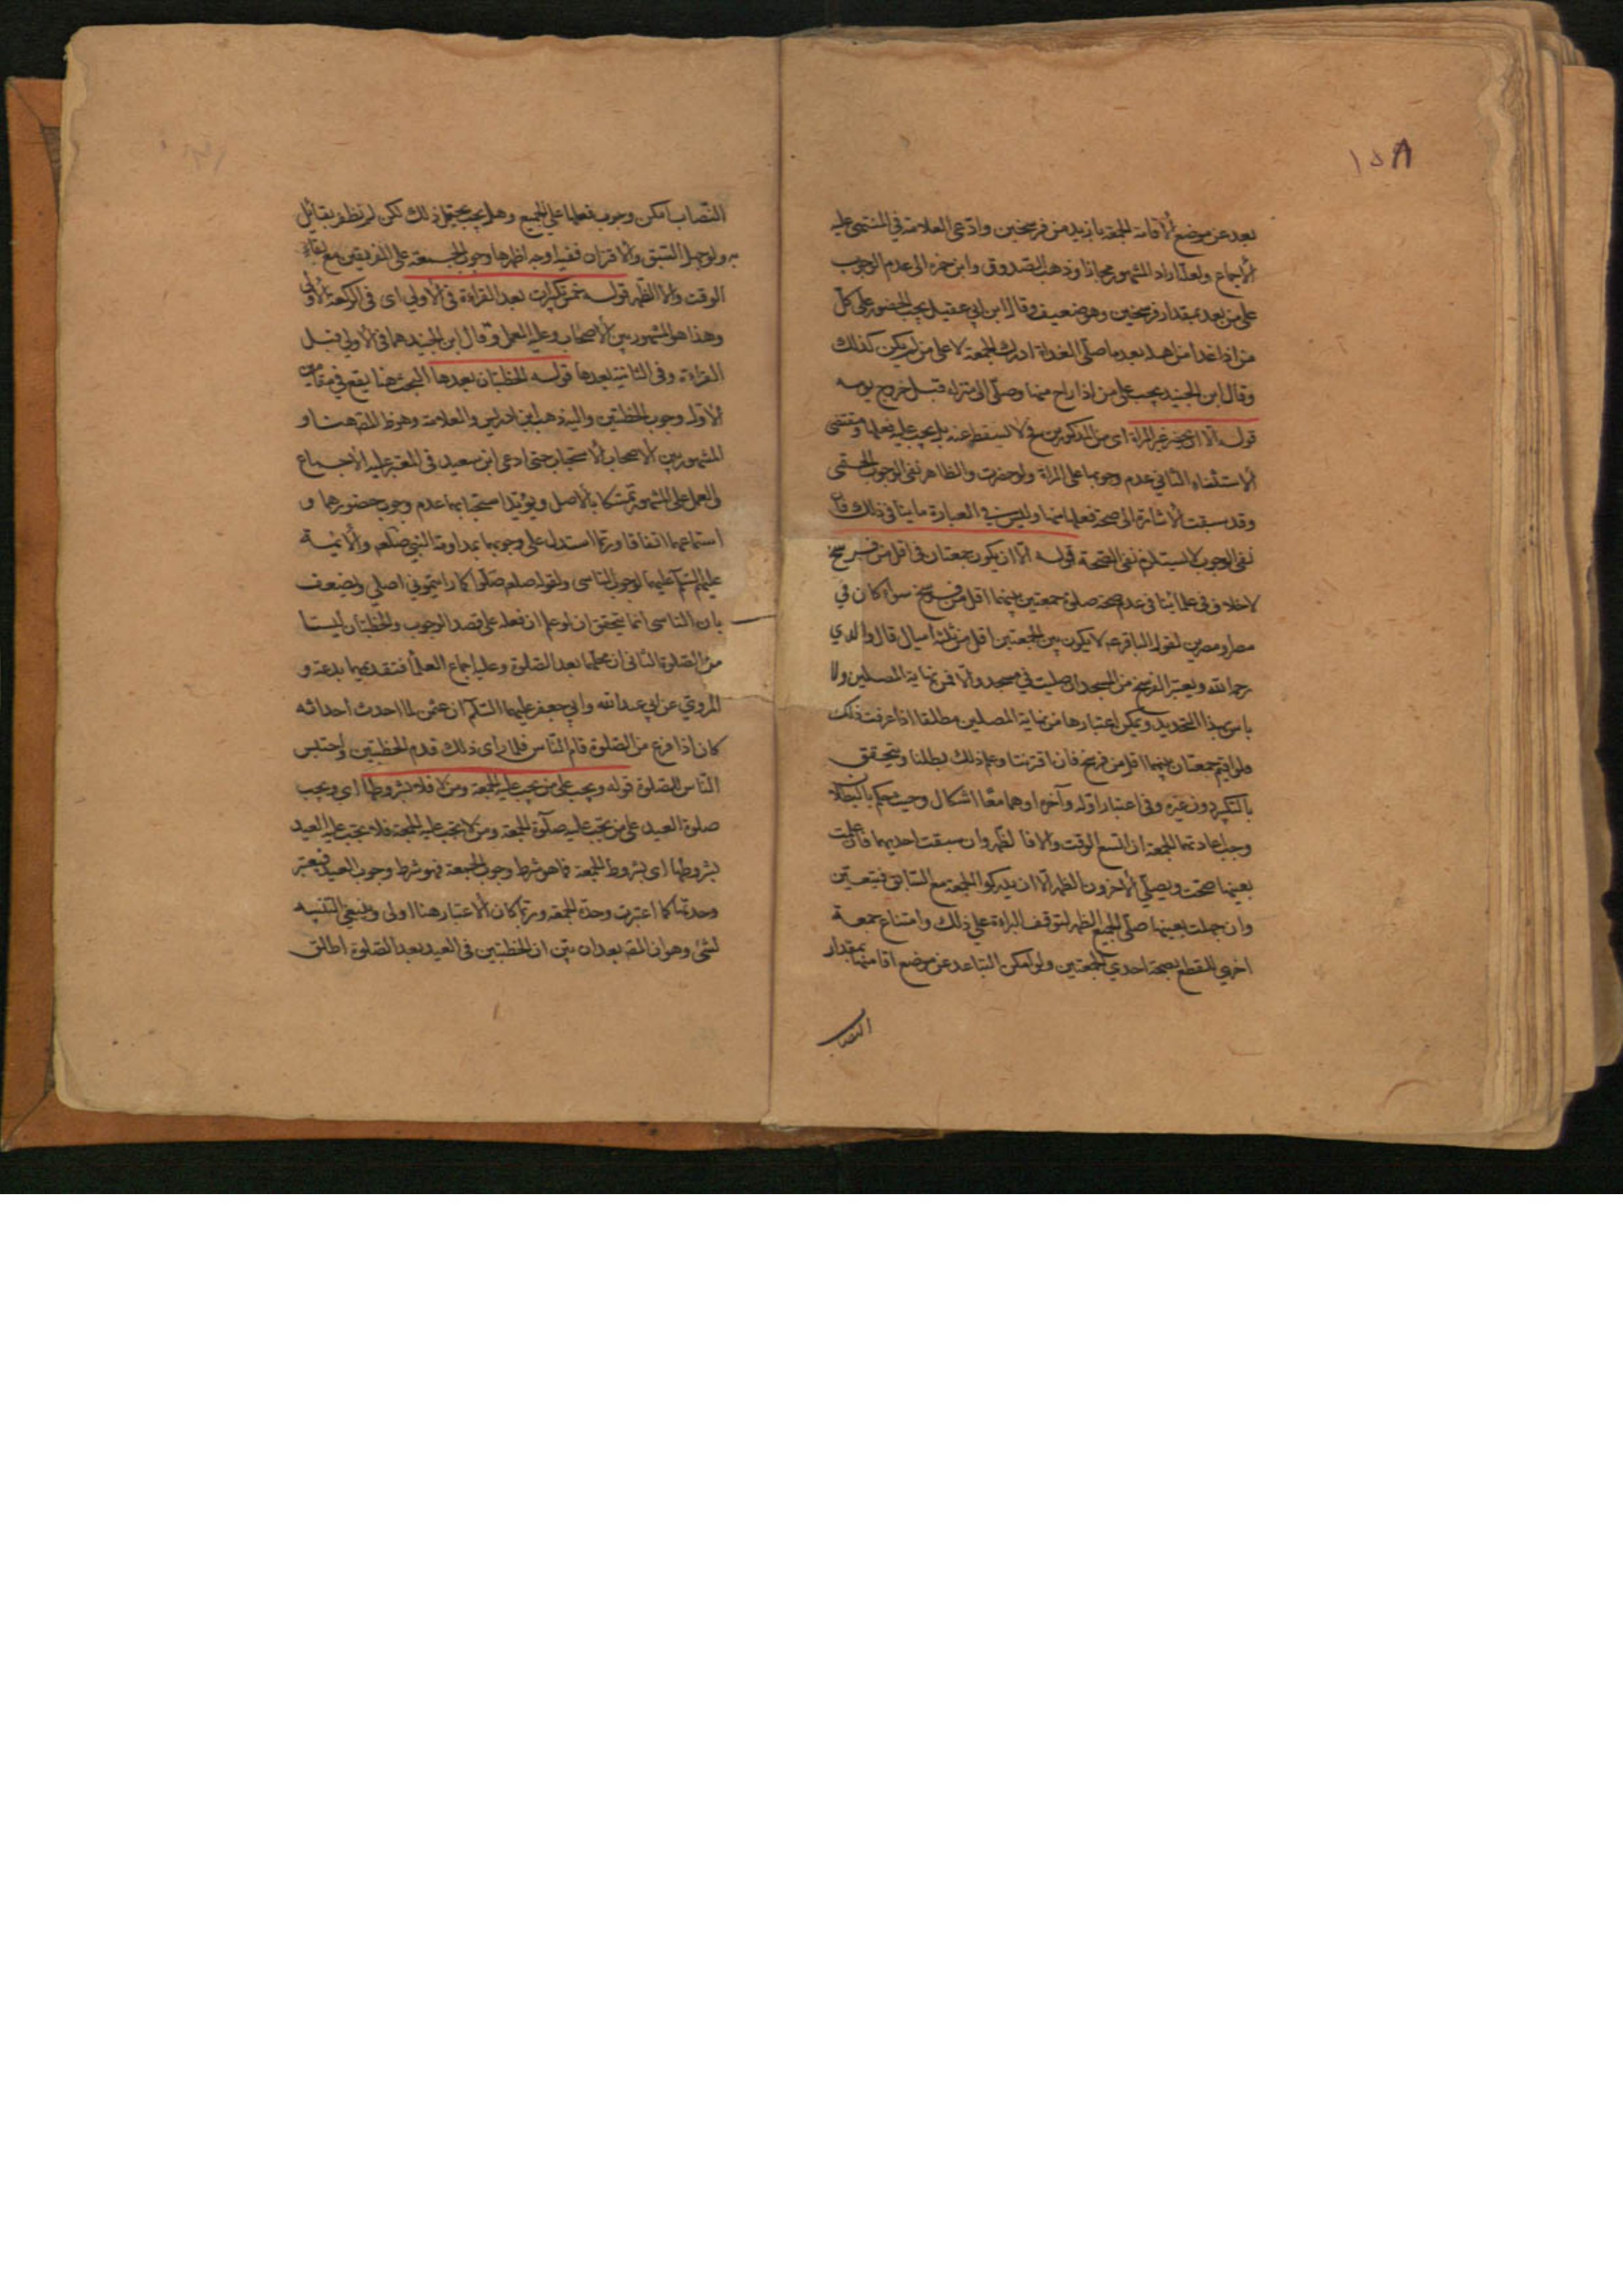 ١٥٨
بعد عن موضع الاقامة للجمعة بازيد من فرسخين وادّعى العلامة في المنتهى عليه
الاجماع ولعلّه اراد المشهور مجازا وذهب الصدوق وابن حمزه الى عدم الوجوب
على من بعد بمقدار فرسخين وهو ضعيف وقال ابن ابي عقيل يجب الحضور على كلّ
من اذا غدا من اهله بعد ما صلّى الغداة ادرك الجمعة لا على من لم يكن كذلك
وقال ابن الجنيد يجب على من اذا راح منها وصل الى منزله قبل خروج يومه
قوله الا ان يحضر غير المراة اى من المذكورين فح لا تسقط عنه بل يجب عليه فعلها ومقتضى
الاستثناء الثاني عدم وجوبها على المراة ولو حضرت والظاهر نفى الوجوب الحتمى
وقد سبقت الاشارة الى صحة فعلها منها وليس في العبارة ما ينافى ذلك فان
نفى الوجوب لا يستلزم نفى الصحة قوله الّا ان يكون جمعتان فى اقل من فرسخ
لا خلاف فى علمائنا فى عدم صحة صلوة جمعتين بينهما اقل من فرسخ سواء كان في
مصر او مصرين لقول الباقر عه لا يكون بين الجمعتين اقل من ثلثة اميال قال والدي
رحمه الله ويعتبر الفرسخ من المسجد ان صليت في مسجد والّا فمن نهاية المصلين ولا
باس بهذا التحديد ويمكن اعتبارها من نهاية المصلين مطلقا اذا عرفت ذلك
فلو اقيم جمعتان بينهما اقل من فرسخ فان اقترنتا وعلم ذلك بطلتا ويتحقق
بالتكبير دون غيره وفى اعتبار اوله وآخره او هما معًا اشكال وحيث يحكم بالبطلان
وجب اعادتهما للجمعة ان اتسع الوقت والا فالظهر وان سبقت احديهما فان علمت
بعينها صحت ويصلّي الاخرون الظهر الّا ان يدركوا الجمعة مع السّابق فيتعيّن
وان جهلت بعينها صلّى الجميع الظهر لتوقف البراءة على ذلك وامتناع جمعة
اخرى للقطع بصحة احدى الجمعتين ولو امكن التباعد عن موضع اقامتها بمقدار
النصاب
النّصاب امكن وجوب فعلها على الجميع وهل يجب يحتمل ذلك لكن لم نظفر بقائل
به ولو جهل السّبق والاقتران ففيه اوجه اظهرها وجوب الجمعة على الفريقين مع بقاء
الوقت والا الظّهر قوله بخمس تكبيرات بعد القراءة فى الاولى اى فى الركعة الاولى
وهذا هو المشهور بين الاصحاب وعليه العمل وقال ابن الجنيد هما فى الاولى قبل
القراءة وفى الثانية بعدها قوله الخطبتان بعدها البحث هنا يقع في مقامين
الاوّل وجوب الخطبتين واليه ذهب ابن ادريس والعلامة وهو ظ المصه هنا و
المشهور بين الاصحاب الاستحباب حتى ادعى ابن سعيد في المعتبر عليه الاجماع
والعمل على المشهور تمسّكا بالاصل ويؤيّد استحبابهما عدم وجوب حضورهما و
استماعهما اتفاقا وربّما استدل على وجوبهما بمداومة النبي صلعم والائمة
عليهم السّلم عليهما لوجوب التاسى ولقوله صلعم صلّوا كما رايتموني اصلي ويضعف
بان التاسى انما يتحقق ان لو علم ان فعله على قصد الوجوب والخطبتان ليستا
من الصّلوة الثانى ان محلّهما بعد الصّلوة وعليه اجماع العلماء فتقديمهما بدعة و
المروي عن ابي عبد الله وابي جعفر عليهما السّلم ان عثمن لما احدث احداثه
كان اذا فرغ من الصّلوة قام النّاس فلما راى ذلك قدم الخطبتين واحتبس
النّاس للصلوة قوله ويجب على من يجب عليه الجمعة ومن لا فلا بشروطها اى ويجب
صلوة العيد على من تجب عليه صلوة الجمعة ومن لا تجب عليه الجمعة فلا تجب عليه العيد
بشروطها اى بشروط الجمعة فما هو شرط وجوب الجمعة فهو شرط وجوب العيد فيعتبر
وحدتها كما اعتبرت وحدة الجمعة وربّما كان الاعتبار هنا اولى وينبغي التنبيه
لشئ وهو ان المصه بعد ان بيّن ان الخطبتين فى العيد بعد الصّلوة اطلق